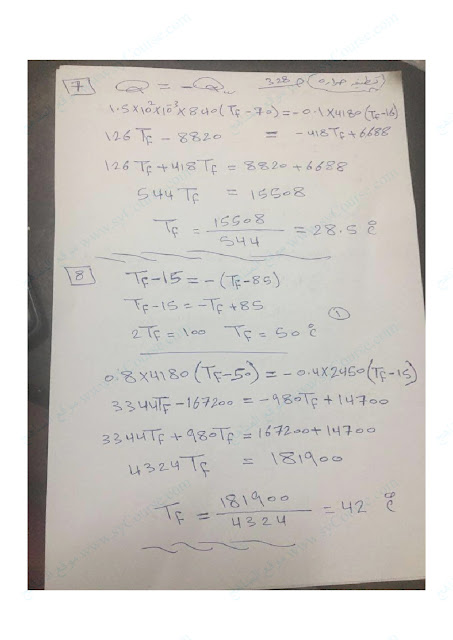 7 Q = - Q تطبيق حرارة ص 328
1.5×10²×10⁻³×840(Tf-70)=-0.1×4180(Tf-16)
126Tf - 8820 = -418Tf + 6688
126Tf + 418Tf = 8820 + 6688
544Tf = 15508
Tf = 15508/544 = 28.5 °C
8 Tf-15=-(Tf-85)
Tf-15=-Tf+85
2Tf=100 Tf=50°C ①
0.8×4180(Tf-50)=-0.4×2450(Tf-15)
3344Tf-167200=-980Tf+14700
3344Tf+980Tf=167200+14700
4324Tf = 181900
Tf = 181900/4324 = 42 °C